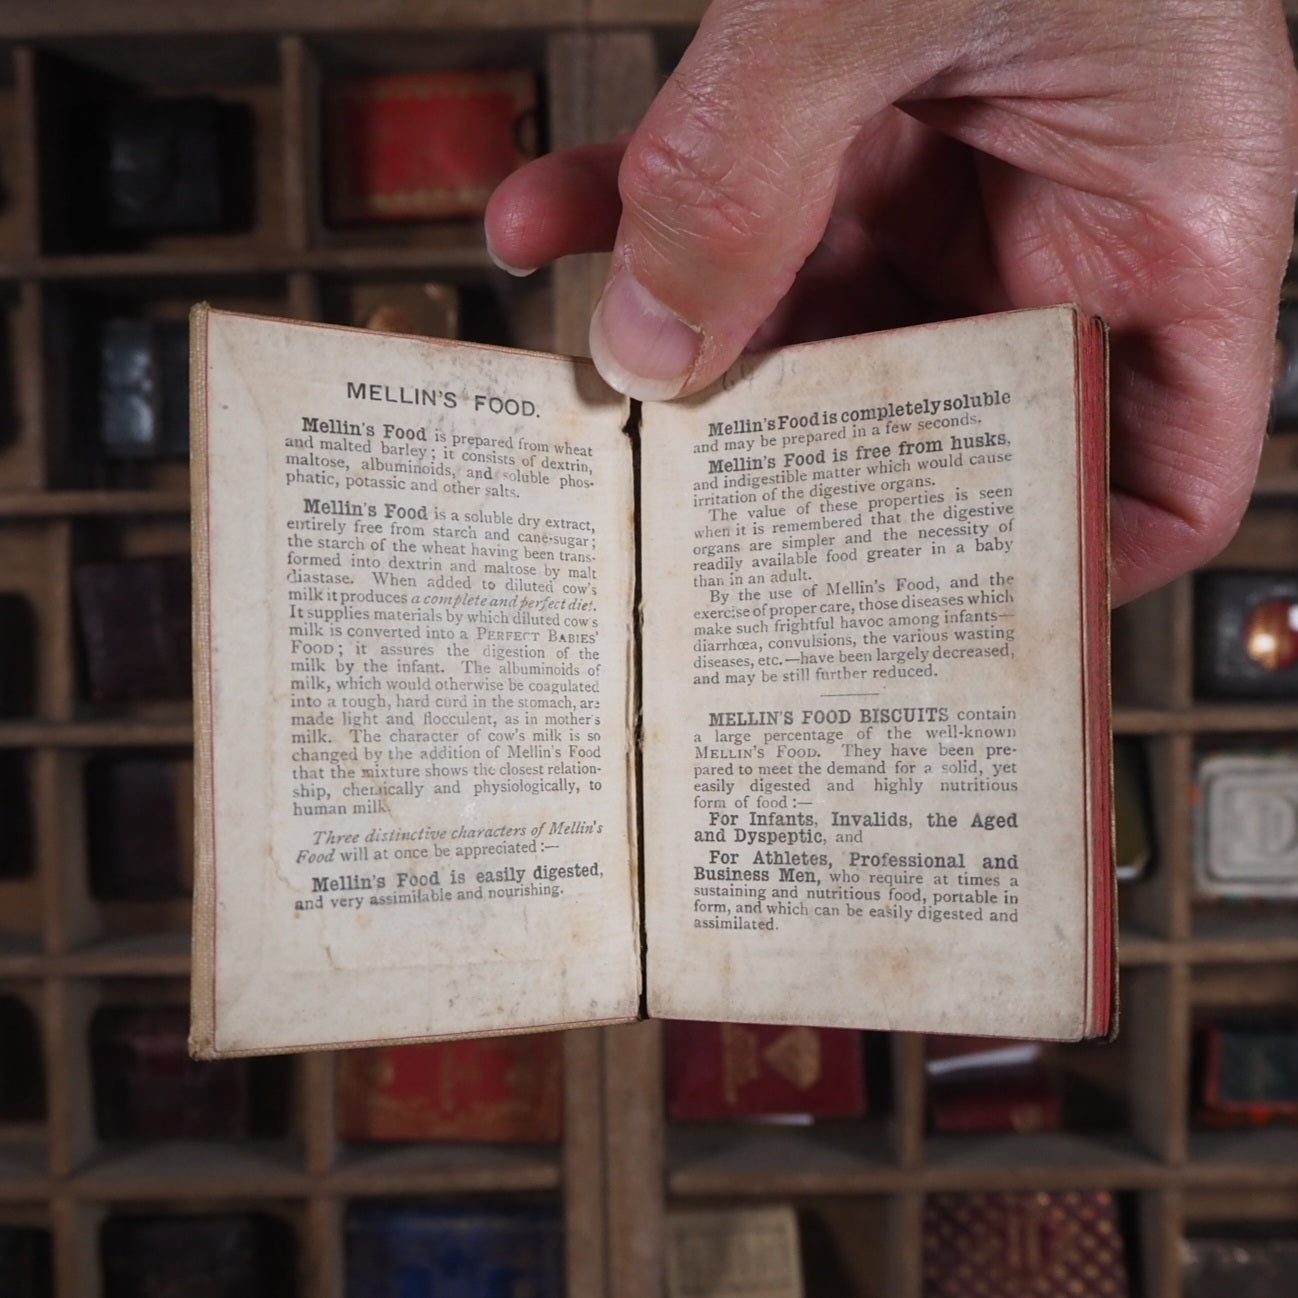 MELLIN'S FOOD.
Mellin's Food is prepared from wheat
and malted barley; it consists of dextrin,
maltose, albuminoids, and soluble phos-
phatic, potassic and other salts.
Mellin's Food is a soluble dry extract,
entirely free from starch and cane-sugar;
the starch of the wheat having been trans-
formed into dextrin and maltose by malt
diastase. When added to diluted cow's
milk it produces a complete and perfect diet.
It supplies materials by which diluted cow's
milk is converted into a PERFECT BABIES'
FOOD; it assures the digestion of the
milk by the infant. The albuminoids of
milk, which would otherwise be coagulated
into a tough, hard curd in the stomach, are
made light and flocculent, as in mother's
milk. The character of cow's milk is so
changed by the addition of Mellin's Food
that the mixture shows the closest relation-
ship, chemically and physiologically, to
human milk.
Three distinctive characters of Mellin's
Food will at once be appreciated:—
Mellin's Food is easily digested,
and very assimilable and nourishing.
64
Mellin's Food is completely soluble
and may be prepared in a few seconds.
Mellin's Food is free from husks,
and indigestible matter which would cause
irritation of the digestive organs.
The value of these properties is seen
when it is remembered that the digestive
organs are simpler and the necessity of
readily available food greater in a baby
than in an adult.
By the use of Mellin's Food, and the
exercise of proper care, those diseases which
make such frightful havoc among infants—
diarrhœa, convulsions, the various wasting
diseases, etc.—have been largely decreased,
and may be still further reduced.
MELLIN'S FOOD BISCUITS contain
a large percentage of the well-known
MELLIN'S FOOD. They have been pre-
pared to meet the demand for a solid, yet
easily digested and highly nutritious
form of food:—
For Infants, Invalids, the Aged
and Dyspeptic, and
For Athletes, Professional and
Business Men, who require at times a
sustaining and nutritious food, portable in
form, and which can be easily digested and
assimilated.
D